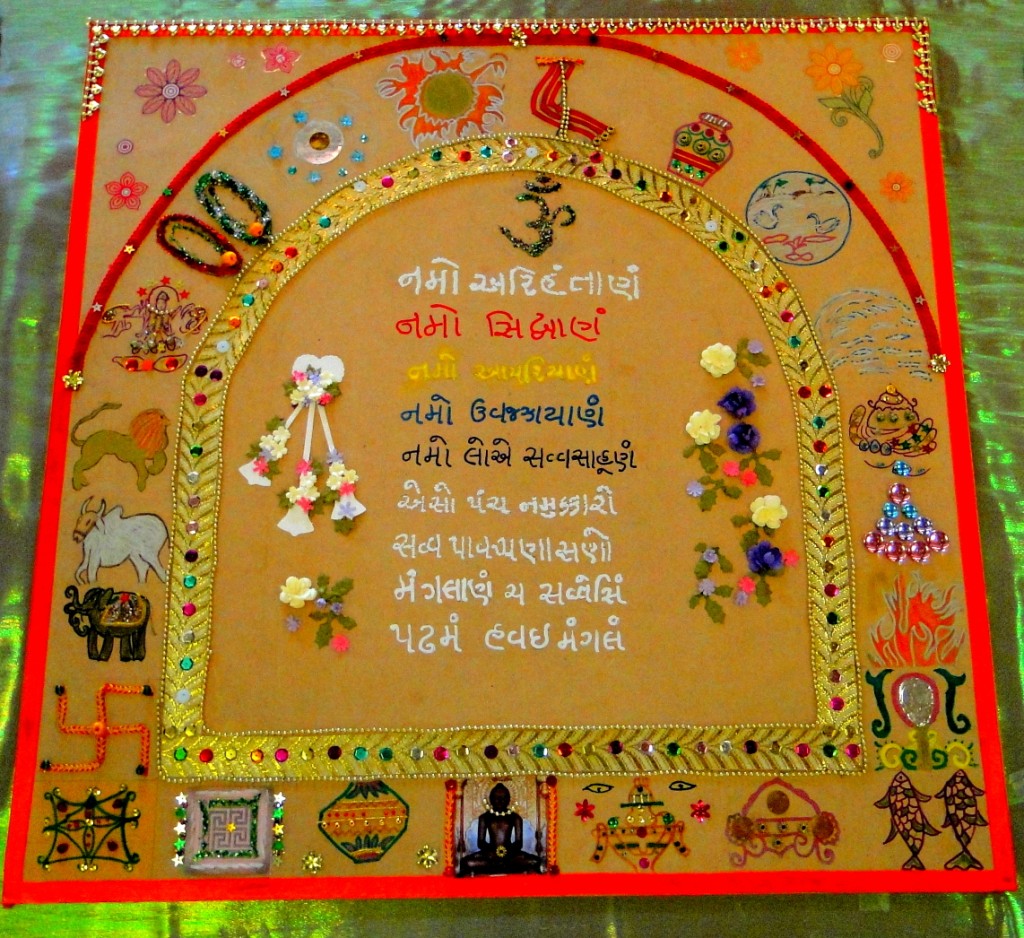 ૐ
નમો અરિહંતાણં
નમો સિદ્ધાણં
નમો આયરિયાણં
નમો ઉવજ્ઝાયાણં
નમો લોએ સવ્વસાહૂણં
એસો પંચ નમુક્કારો
સવ્વ પાવપ્પણાસણો
મંગલાણં ચ સવ્વેસિં
પઢમં હવઇ મંગલં